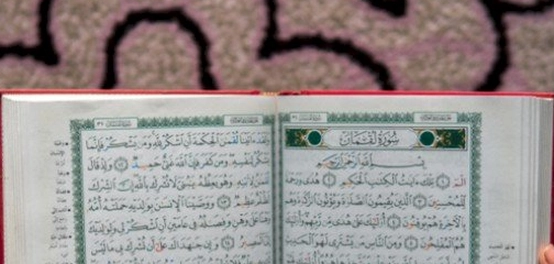 سُورَةُ لُقْمَانَ
بِسْمِ اللَّهِ الرَّحْمَٰنِ الرَّحِيمِ
الم ۝ تِلْكَ ءَايَٰتُ الْكِتَٰبِ الْحَكِيمِ ۝ هُدًى وَرَحْمَةً
لِّلْمُحْسِنِينَ ۝ الَّذِينَ يُقِيمُونَ الصَّلَوٰةَ وَيُؤْتُونَ الزَّكَوٰةَ وَهُم
بِالْأَخِرَةِ هُمْ يُوقِنُونَ ۝ أُولَٰئِكَ عَلَىٰ هُدًى مِّن رَّبِّهِمْ وَأُولَٰئِكَ
هُمُ الْمُفْلِحُونَ ۝ وَمِنَ النَّاسِ مَن يَشْتَرِى لَهْوَ الْحَدِيثِ
وَلَقَدْ ءَاتَيْنَا لُقْمَٰنَ الْحِكْمَةَ أَنِ اشْكُرْ لِلَّهِ وَمَن يَشْكُرْ فَإِنَّمَا
يَشْكُرُ لِنَفْسِهِ وَمَن كَفَرَ فَإِنَّ اللَّهَ غَنِىٌّ حَمِيدٌ ۝ وَإِذْ قَالَ
لُقْمَٰنُ لِابْنِهِ وَهُوَ يَعِظُهُ يَٰبُنَىَّ لَا تُشْرِكْ بِاللَّهِ إِنَّ الشِّرْكَ
لَظُلْمٌ عَظِيمٌ ۝ وَوَصَّيْنَا الْإِنسَٰنَ بِوَٰلِدَيْهِ حَمَلَتْهُ أُمُّهُ
وَهْنًا عَلَىٰ وَهْنٍ وَفِصَٰلُهُ فِى عَامَيْنِ أَنِ اشْكُرْ لِى وَلِوَٰلِدَيْكَ
إِلَىَّ الْمَصِيرُ ۝ وَإِن جَٰهَدَاكَ عَلَىٰ أَن تُشْرِكَ بِى مَا لَيْسَ